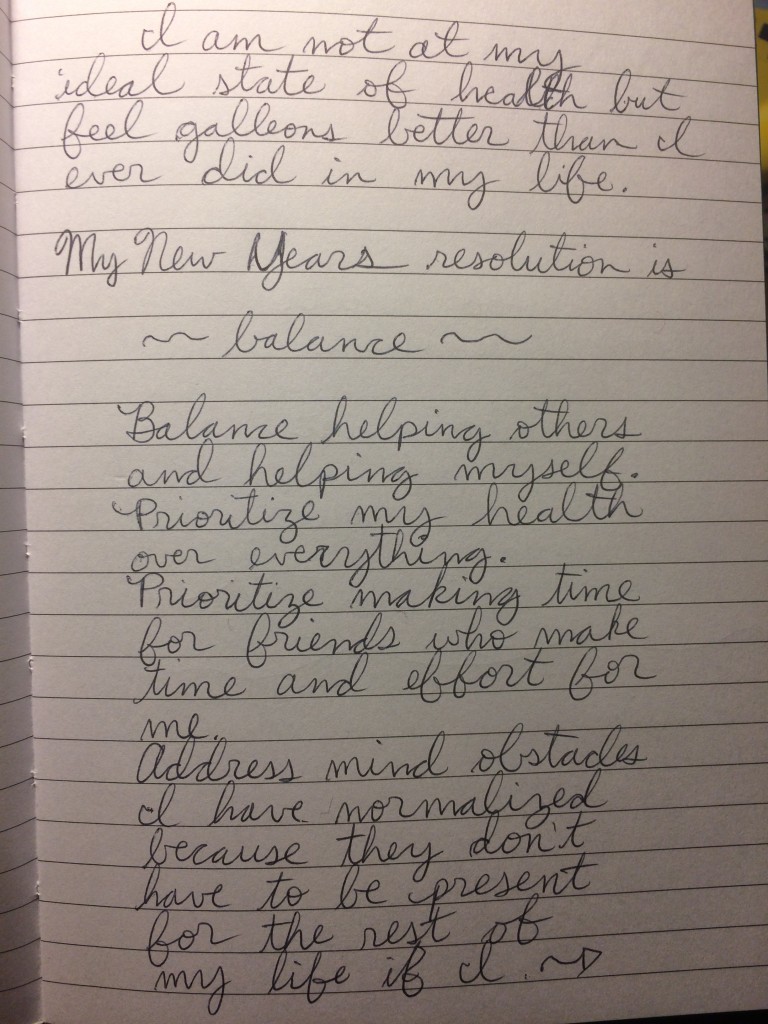 I am not at my
ideal state of health but
feel galleons better than I
ever did in my life.
My New Years resolution is
~ balance ~
Balance helping others
and helping myself.
Prioritize my health
over everything.
Prioritize making time
for friends who make
time and effort for
me.
Address mind obstacles
I have normalized
because they don't
have to be present
for the rest of
my life if I.